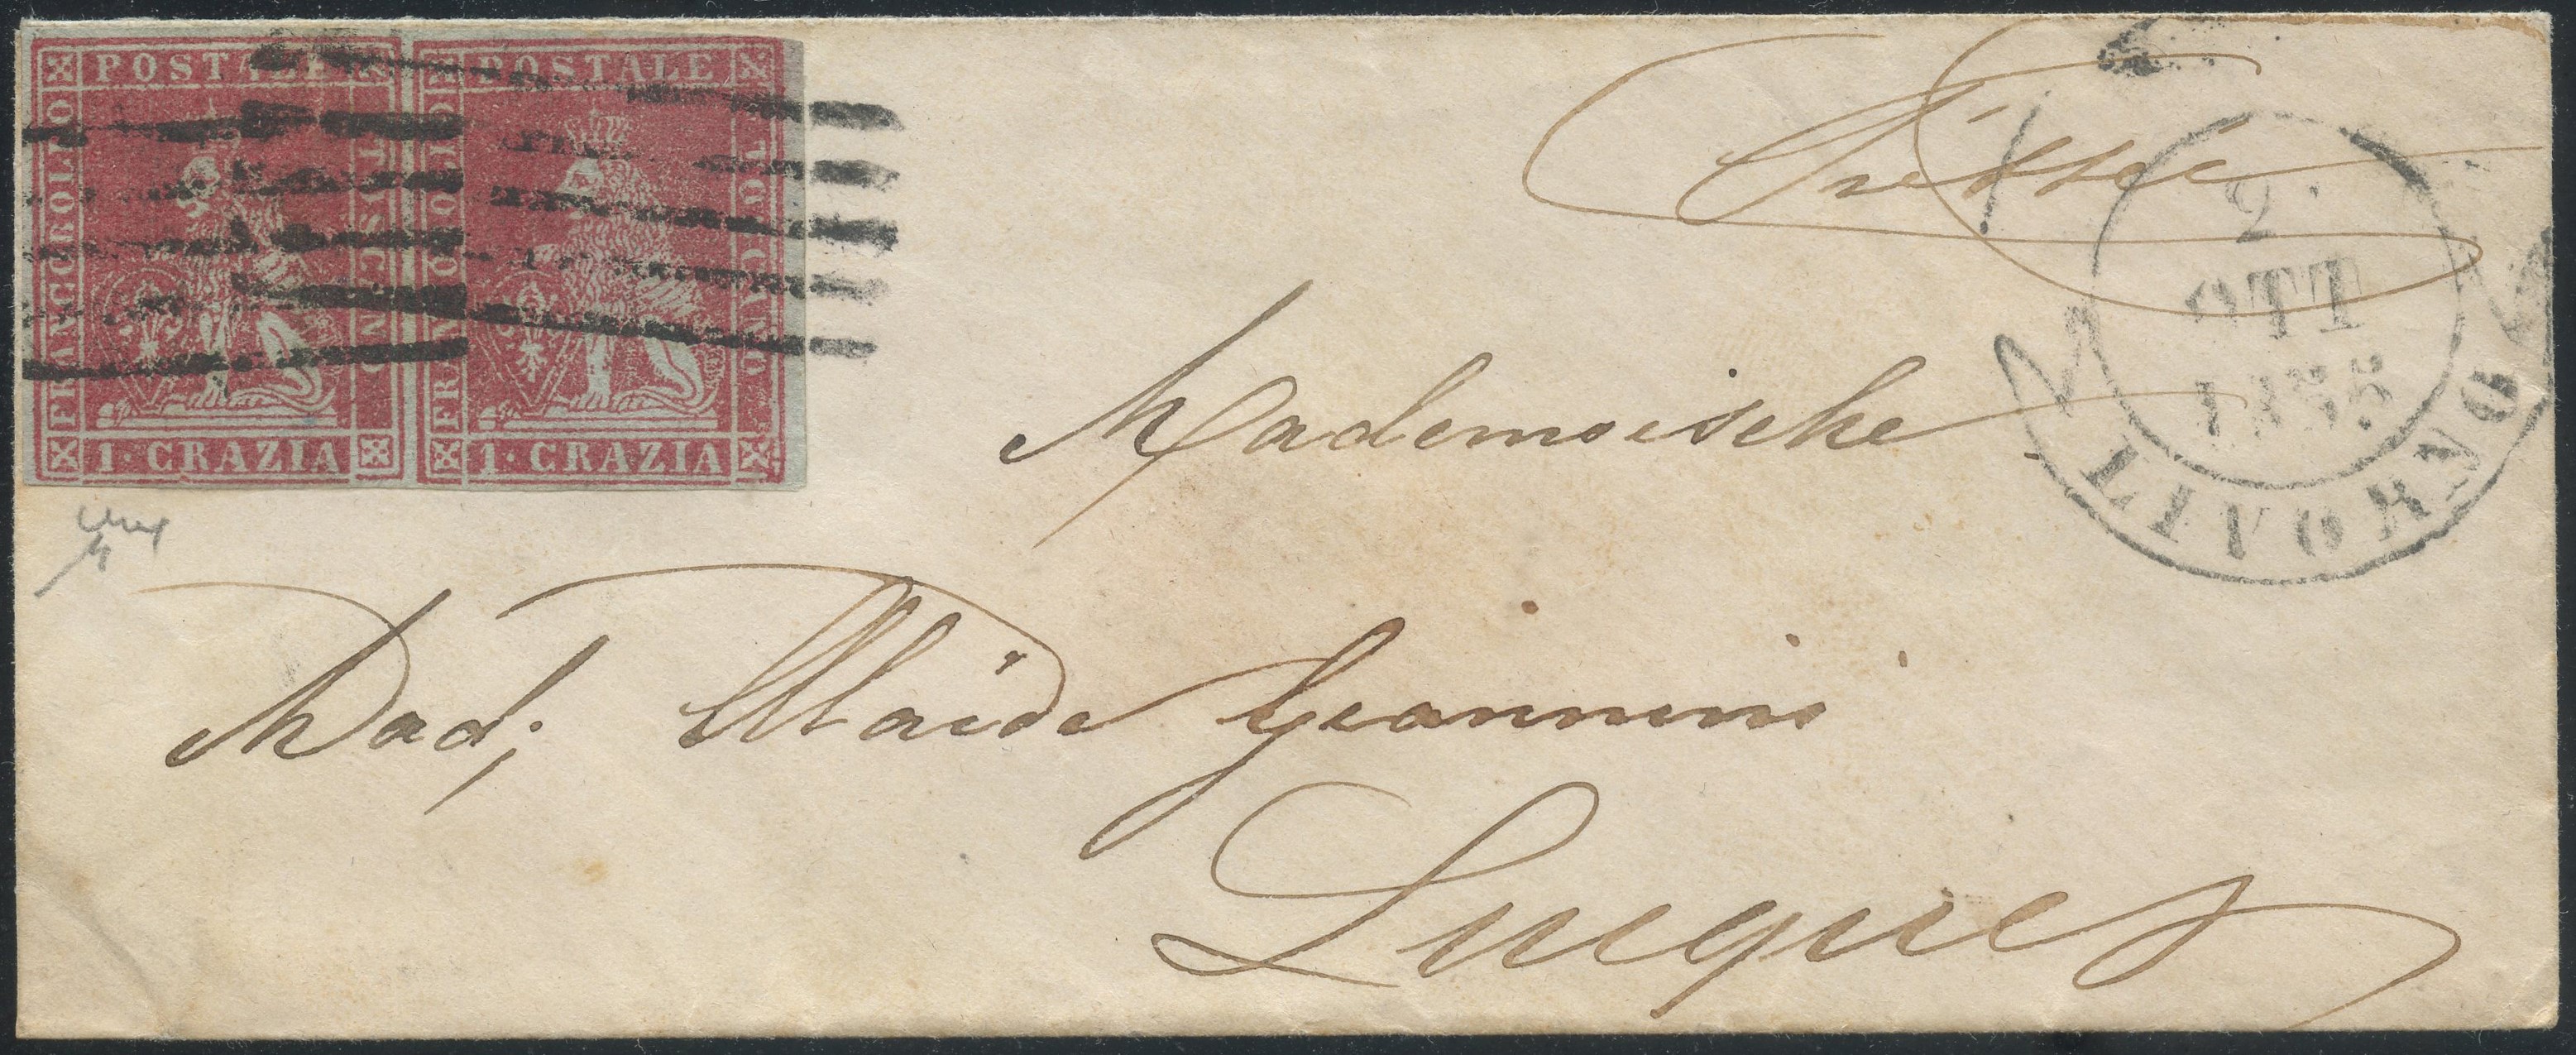 POSTALE POSTALE
FRANCOBOLLO TOSCANO FRANCOBOLLO TOSCANO
1·CRAZIA 1·CRAZIA
2
OTT
1855
LIVORNO
Mademoiselle
Mad; Giannini
Lucques